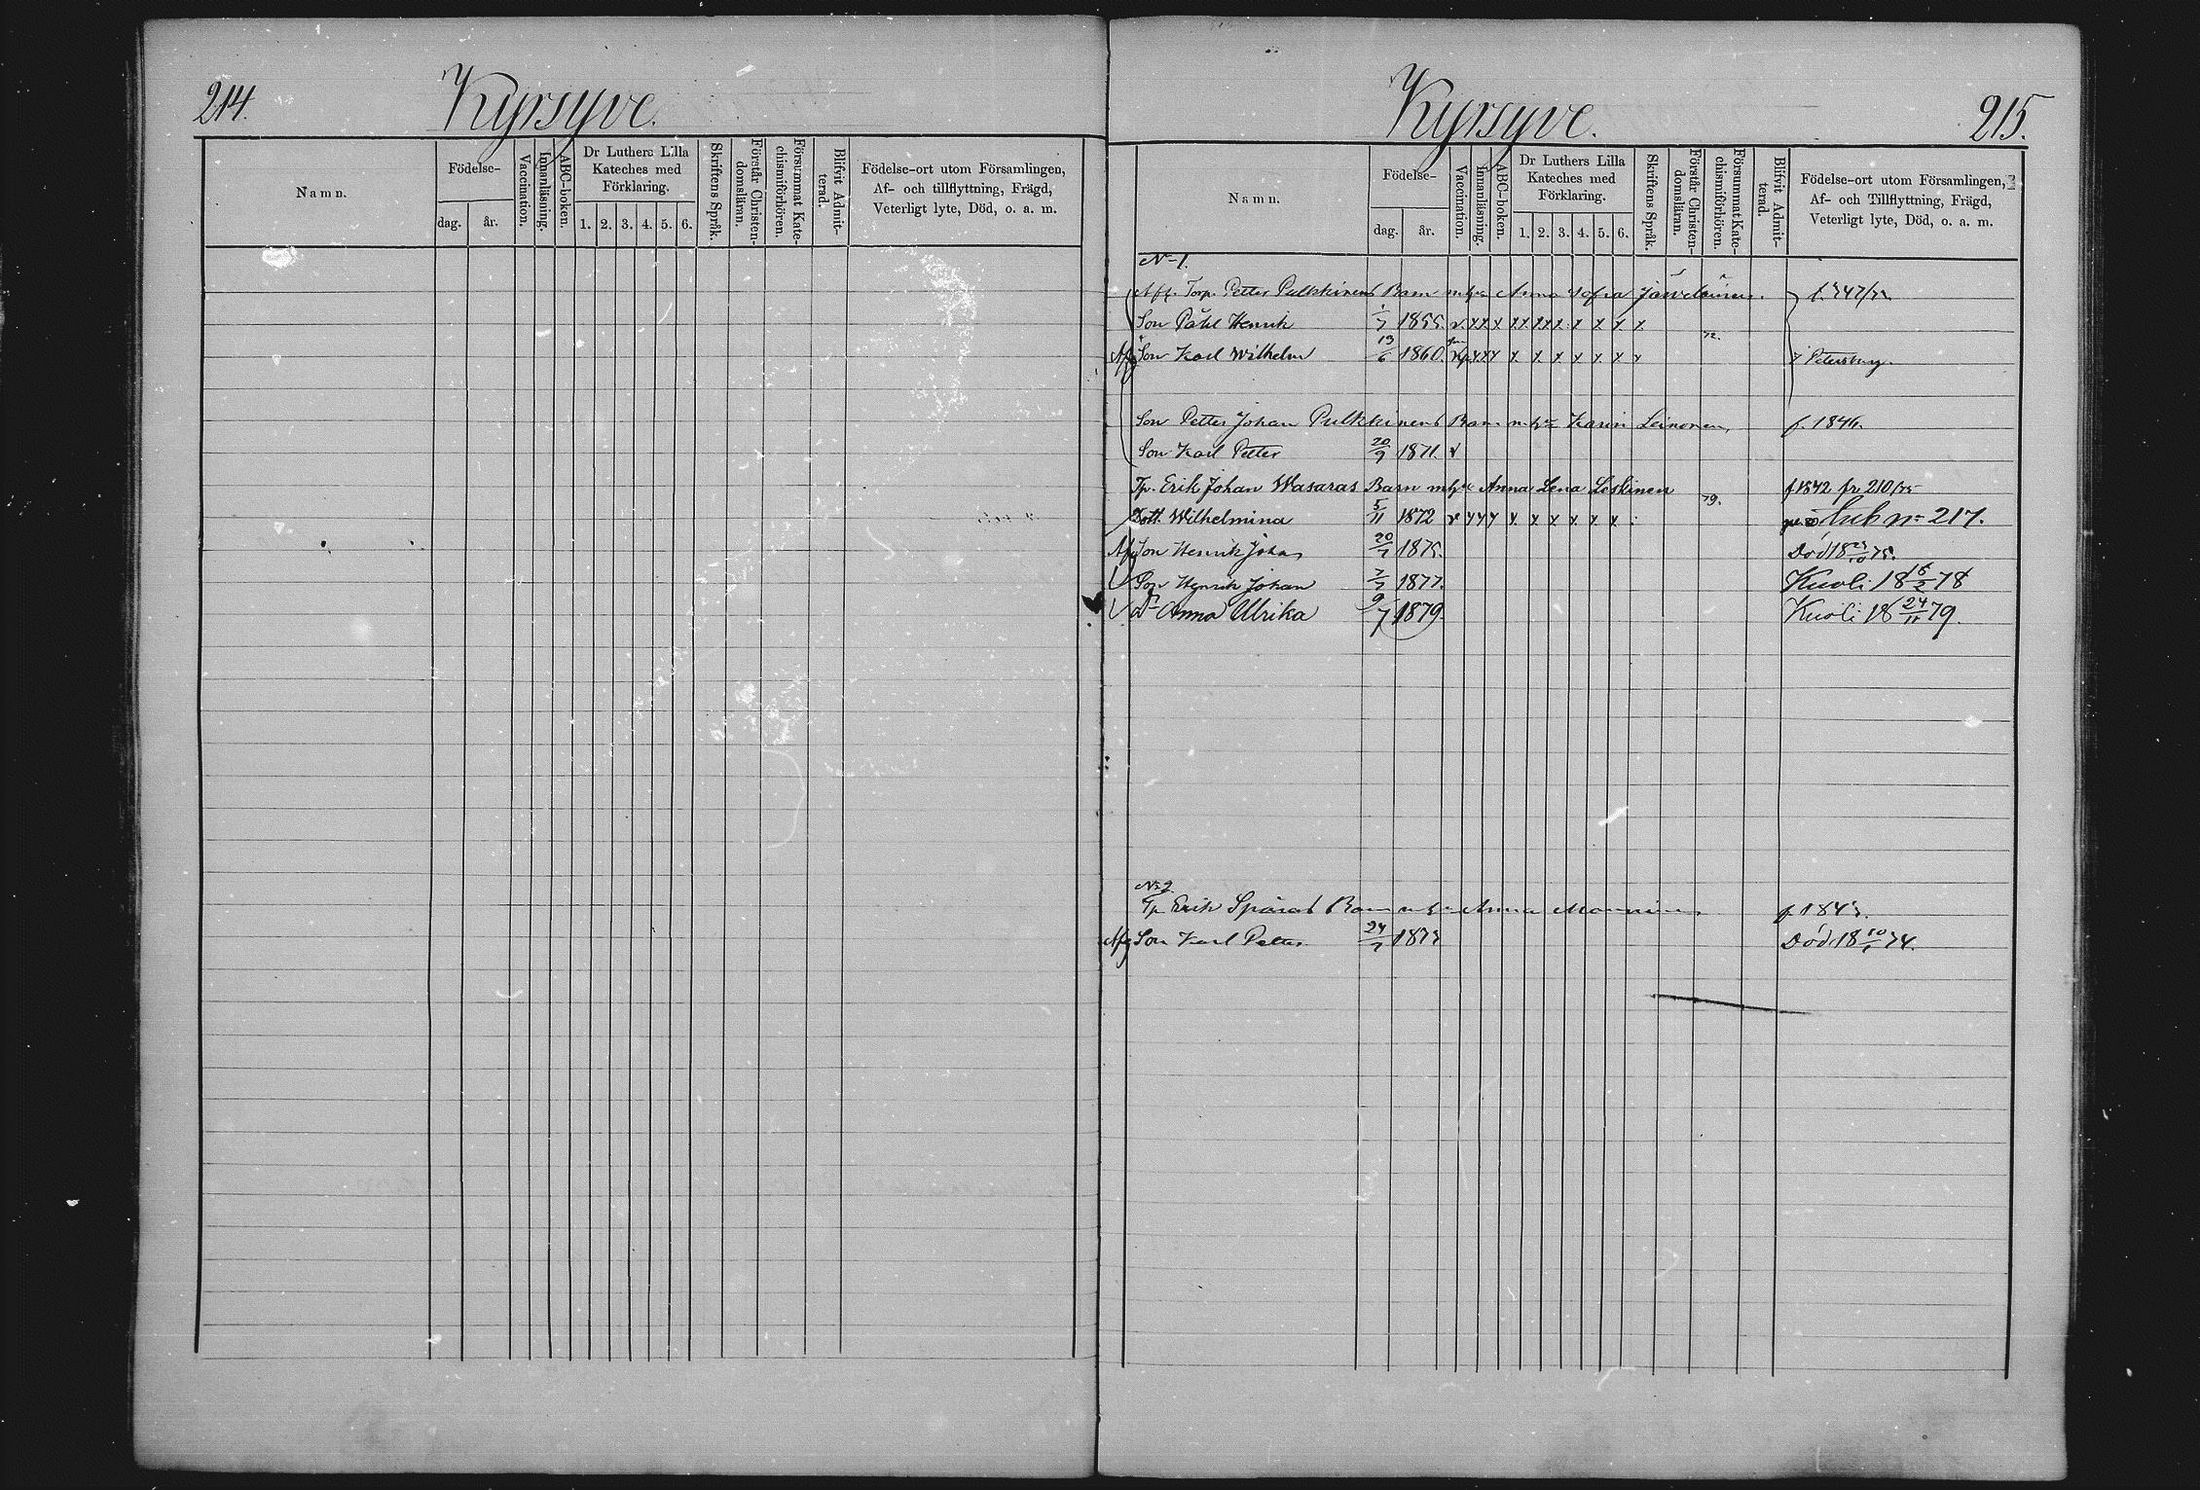 214.
Kyrsyve.
Namn.
Födelse-
dag. år.
Vaccination.
Innanläsning.
ABC-boken.
Dr Luthers Lilla
Kateches med
Förklaring.
1. 2. 3. 4. 5. 6.
Skriftens Språk.
Förstår Christen-
domslärnn.
Försummat Kate-
chismiförhören.
Blifvit Admit-
terad.
Födelse-ort utom Församlingen,
Af- och tillflyttning, Frägd,
Veterligt lyte, Död, o. a. m.
Kyrsyve.
215.
Namn.
Födelse-
dag. år.
Vaccination.
Innanläsning.
ABC-boken.
Dr Luthers Lilla
Kateches med
Förklaring.
1. 2. 3. 4. 5. 6.
Skriftens Språk.
Förstår Christen-
domsläran.
Försummat Kate-
chismiförhören.
Blifvit Admit-
terad.
Födelse-ort utom Församlingen,
Af- och Tillflyttning, Frägd,
Veterligt lyte, Död, o. a. m.
N-1.
Torp. Petter Pulkkinens Barn Anna Sofia
Son Påhl Henrik 1/7 1855. v x x x x x x x x x x x x
Afg Son Karl Wilhelm 13/6 1860. x x x x x x x x x x Petersburg.
Son Petter Johan Pulkkinens Barn Karin Leinonen, f. 1846.
Son Karl Petter 20/9 1871. v
Tp. Erik Johan Wasaras Barn Anna Lena Leskinen 79. f 1842 fr 210/75
Dott. Wilhelmina 5/11 1872 v x x x x x x x x x N= 217.
Afg Son Henrik Johan 20/7 1875. Död 18 /10 75.
Son Henrik Johan 7/7 1877. Kuoli 18 6/2 78
Dr Anna Ulrika 9/7 1879. Kuoli 18 24/11 79.
N=2.
Tp Erik Barn Anna
Afg Son Karl Petter 24/7 1873 Död 18 10/1 74.